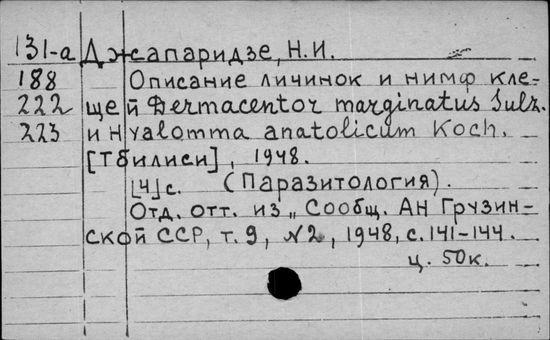 131-а Джапаридзе, Н.И.
188 Описание личинок и нимф кле-
222 щей Dermacentor marginatus Sulz.
223 и Hyalomma anatolicum Koch.
[Тбилиси], 1948.
[4]с. (Паразитология).
Отд. отт. из „Сообщ. АН Грузин-
ской ССР, т. 9, №2, 1948, с. 141-144.
ц. 50к.